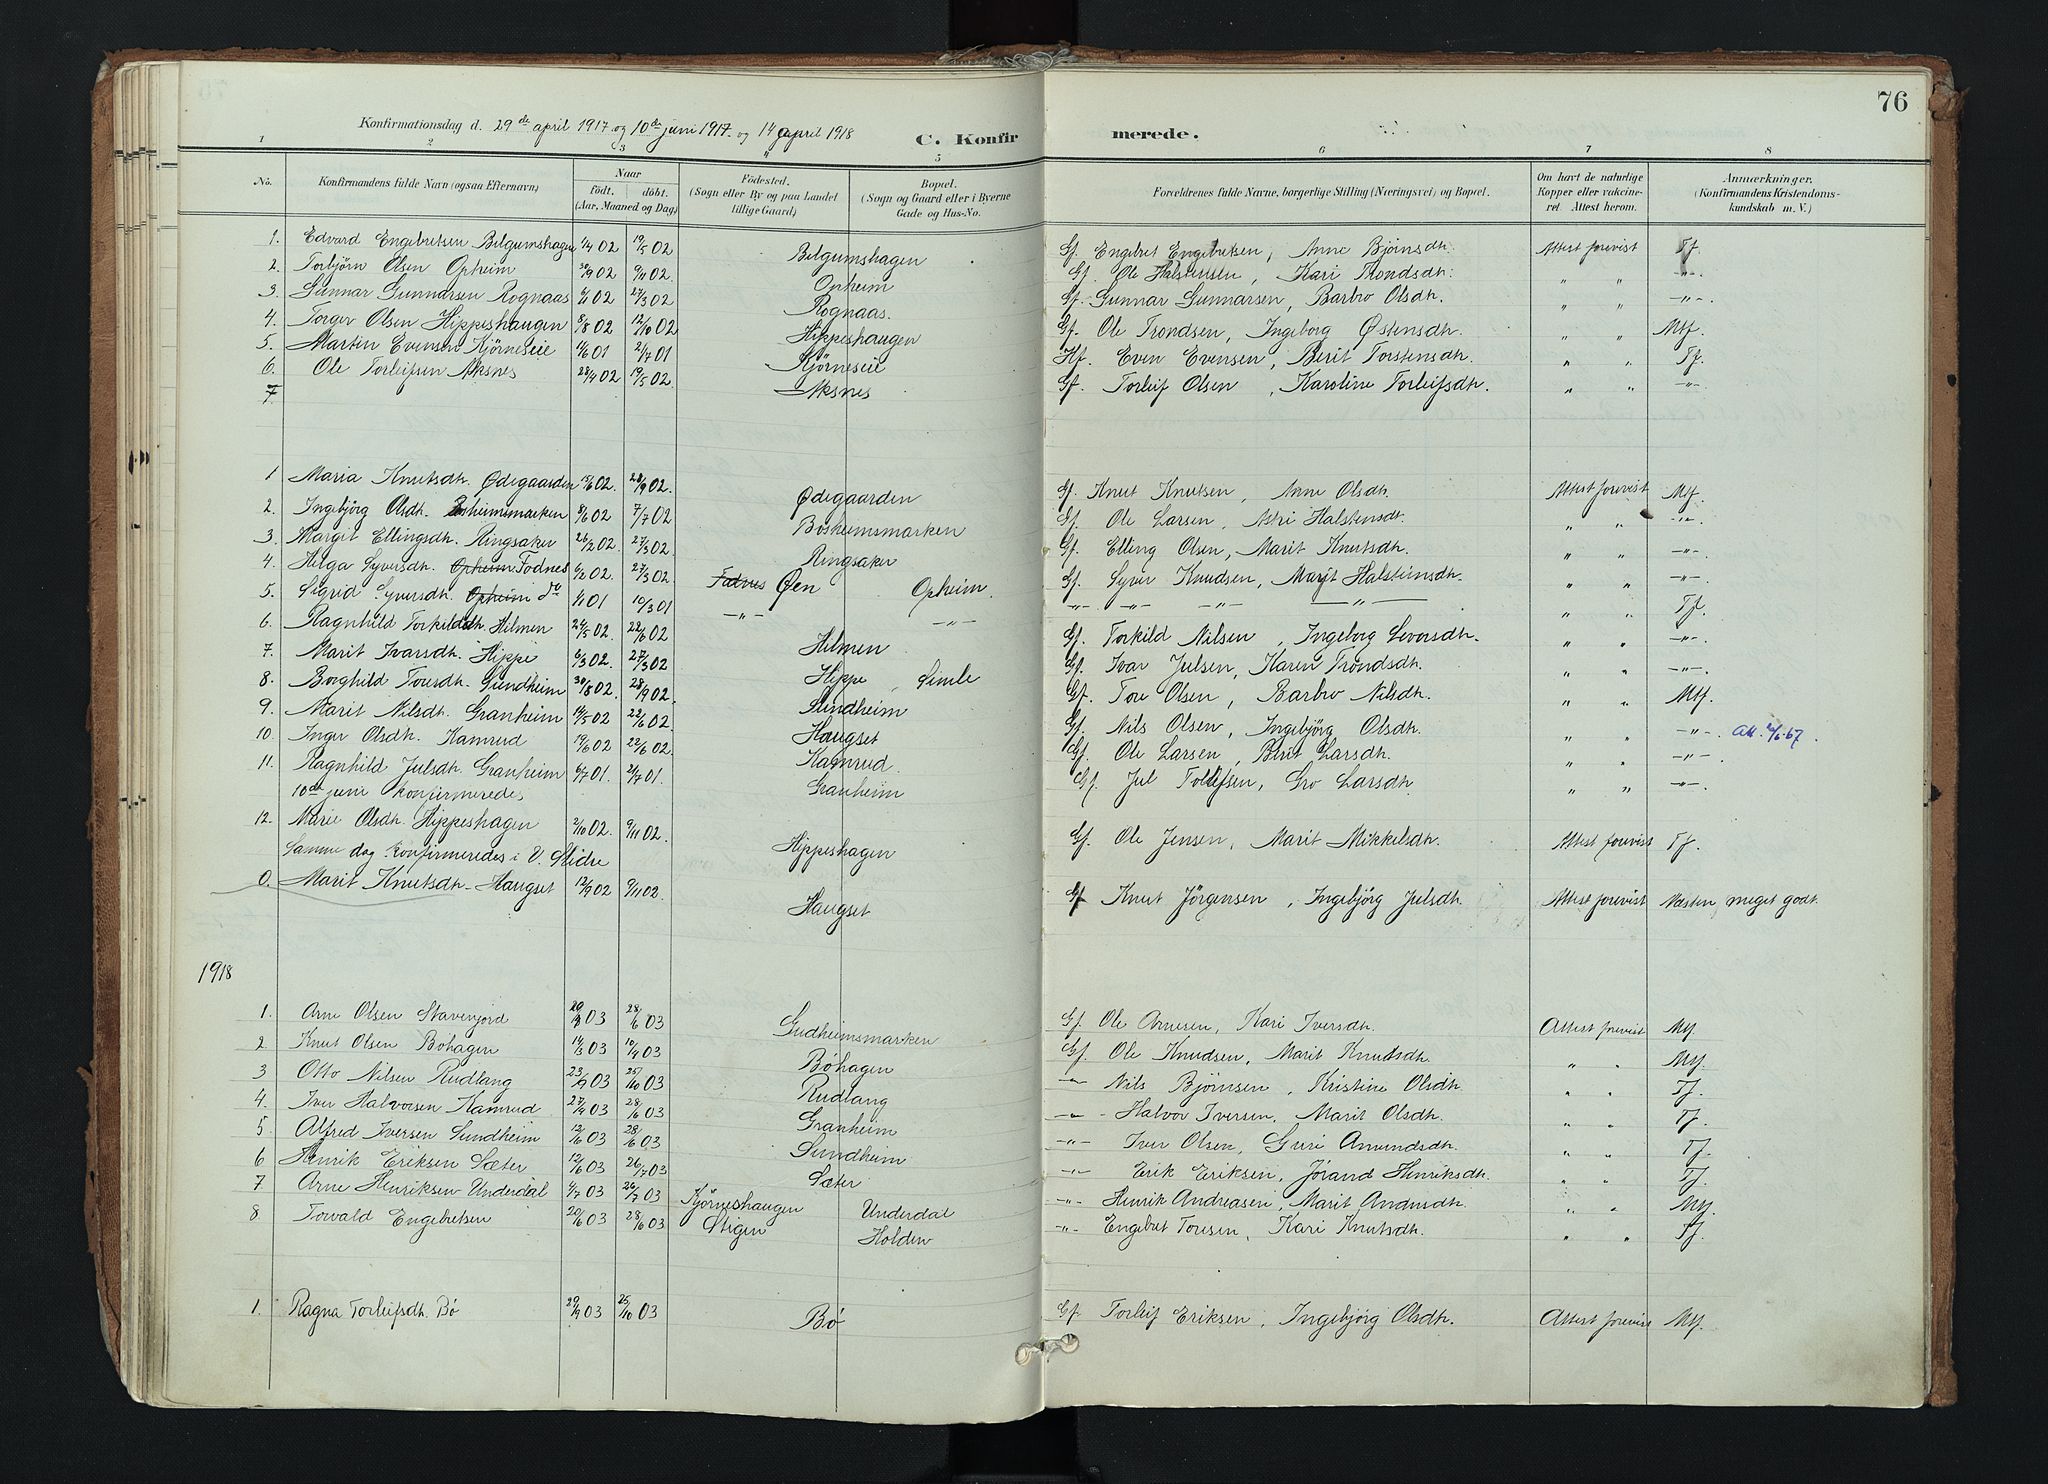 76
Konfirmationsdag d. 29de april 1917 og 10de juni 1917 og 14 april 1918
C. Konfirmerede.
1 2 3 4 5 6 7 8
No. Konfirmandens fulde Navn (ogsaa Efternavn) Naar født. døbt. (Aar, Maaned og Dag) Fødested. (Sogn eller By og paa Landet tillige Gaard) Bopæl. (Sogn og Gaard eller i Byerne Gade og Hus-No. Forældrenes fulde Navne, borgerlige Stilling (Næringsvei) og Bopæl. Om havt de naturlige Kopper eller vakcineret. Attest herom. Anmærkninger. (Konfirmandens Kristendomskundskab m. V.)
1. Edvard Engebretsen Belgumshagen 1/4 02 19/5 02 Belgumshagen Gf. Engebret Engebretsen, Anne Bjørnsdt. Attest forevist Tf.
2. Torbjörn Olsen Opheim 30/9 02 9/11 02 Opheim Gf. Ole Halstensen, Kari Trondsdt. " " -"-
3. Gunnar Gunnarsen Rognaas 27/3 02 Rognaas. Gf. Gunnar Gunnarsen, Barbro Olsdt. " " -"-
4. Torger Olsen Hippeshaugen 8/8 02 12/10 02 Hippeshaugen Gf. Ole Trondsen, Ingeborg Østensdt. " " Mtf.
5. Martin Evensen Kjørneseie 11/6 01 21/7 01 Kjørneseie Hf. Even Evensen, Berit Torstensdt. " " Tf.
6. Ole Torleifsen Aksnes 28/4 02 19/5 02 Aksnes Gf. Torleif Olsen, Karoline Torleifsdt. " " -"-
7
1 Maria Knutsdt. Ødegaarden 15/6 02. 28/9 02. Ødegaarden Gf. Knut Knutsen, Anne Olsdt. Attest forevist Mtf.
2. Ingebjörg Olsdt. Bøsheimsmarken 8/6 02 7/7 02 Bøsheimsmarken Gf. Ole Larsen, Astri Halstensdt. " " -"-
3. Margit Ellingsdt. Ringsaker 26/2 02. 27/3 02. Ringsaker Gf. Elling Olsen, Marit Knutsdt. " " -"-
4. Helga Syversdt. Opheim Fodnes 6/2 02. 27/3 02. Fodnes Øen Opheim. Gf. Syver Knudsen, Marit Halsteinsdt. " " -"-
5. Sigrid Syversdt. Opheim do 1/1 01 10/3 01 -"- -"- -"- -"- -"- -"- " " Tf.
6. Ragnhild Torkildsdt. Hilmen 24/5 02. 22/6 02 Hilmen Gf. Torkild Nilsen, Ingeborg Seversdt. " " -"-
7. Marit Ivarsdt. Hippe 6/3 02. 27/3 02 Hippe Semle Gf. Ivar Julsen, Karen Trondsdt. " " -"-
8. Borghild Toresdt. Sundheim 30/8 02. 28/9 02. Sundheim Gf. Tore Olsen, Barbro Nilsdt. " " Mtf.
9. Marit Nilsdt. Granheim 14/5 02 22/6 02. Haugset Gf. Nils Olsen, Ingebjörg Olsdt. " " -"- att. 2/6-67.
10. Inger Olsdt. Kamrud 19/6 02 22/6 02. Kamrud. Gf. Ole Larsen, Berit Larsdt. " " -"-
11. Ragnhild Julsdt. Granheim 6/7 01. 21/7 01. Granheim Gf. Jul Tollefsen, Gro Larsdt. " " -"-
10de juni konfirmeredes
12. Marie Olsdt. Hippeshagen 2/10 02. 9/11 02. Hippeshagen Gf. Ole Jensen, Marit Mikkelsdt. Attest forevist Tf.
Samme dag konfirmeredes i V. Slidre
0. Marit Knutsdt. Haugset 12/9 02 9/11 02. Haugset Gf Knut Jörgensen, Ingebjörg Julsdt. Attest forevist Næsten meget godt.
1918
1. Arne Olsen Stavenjord 03 28/6 03 Gudheimsmarken Gf. Ole Arnesen, Kari Iversdt. Attest forevist Mtf.
2 Knut Olsen Bøhagen 14/3 03 10/4 03 Bøhagen Gf. Ole Knudsen, Marit Knutsdt. " " Mtf.
3 Otto Nilsen Rudlang 23/9 03 25/10 03 Rudlang -"- Nils Bjørnsen, Kristine Olsdt. " " Tf.
4. Iver Halvorsen Kamrud 27/4 03 28/6 03 Granheim -"- Halvor Iversen, Marit Olsdt. " " Tf.
5 Alfred Iversen Sundheim 12/6 03 28/6 03 Sundheim -"- Iver Olsen, Guri Amundsdt. " " Tf.
6 Henrik Eriksen Sæter 12/6 03 26/7 03 Sæter -"- Erik Eriksen, Jørand Henriksdt. " " Tf.
7 Arne Henriksen Underdal 4/7 03 26/7 03 Kjørneshaugen Underdal -"- Henrik Andreasen, Marit " " Mtf.
8. Torvald Engebretsen 20/6 03 28/6 03 Stigen Holden -"- Engebret Toresen, Kari Knutsdt. " " Tf.
1. Ragna Torleifsdt. Bø 29/9 03 25/10 03 Bø Gf. Torleif Eriksen, Ingebjörg Olsdt. Attest forevist Mtf.